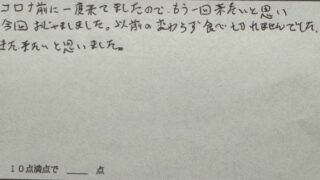 コロナ前に一度来てましたので、もう一回来たいと思い
今回おじゃましました。以前の変わらず食べ切れませんでした、
また来たいと思いました。
10点満点で ___ 点